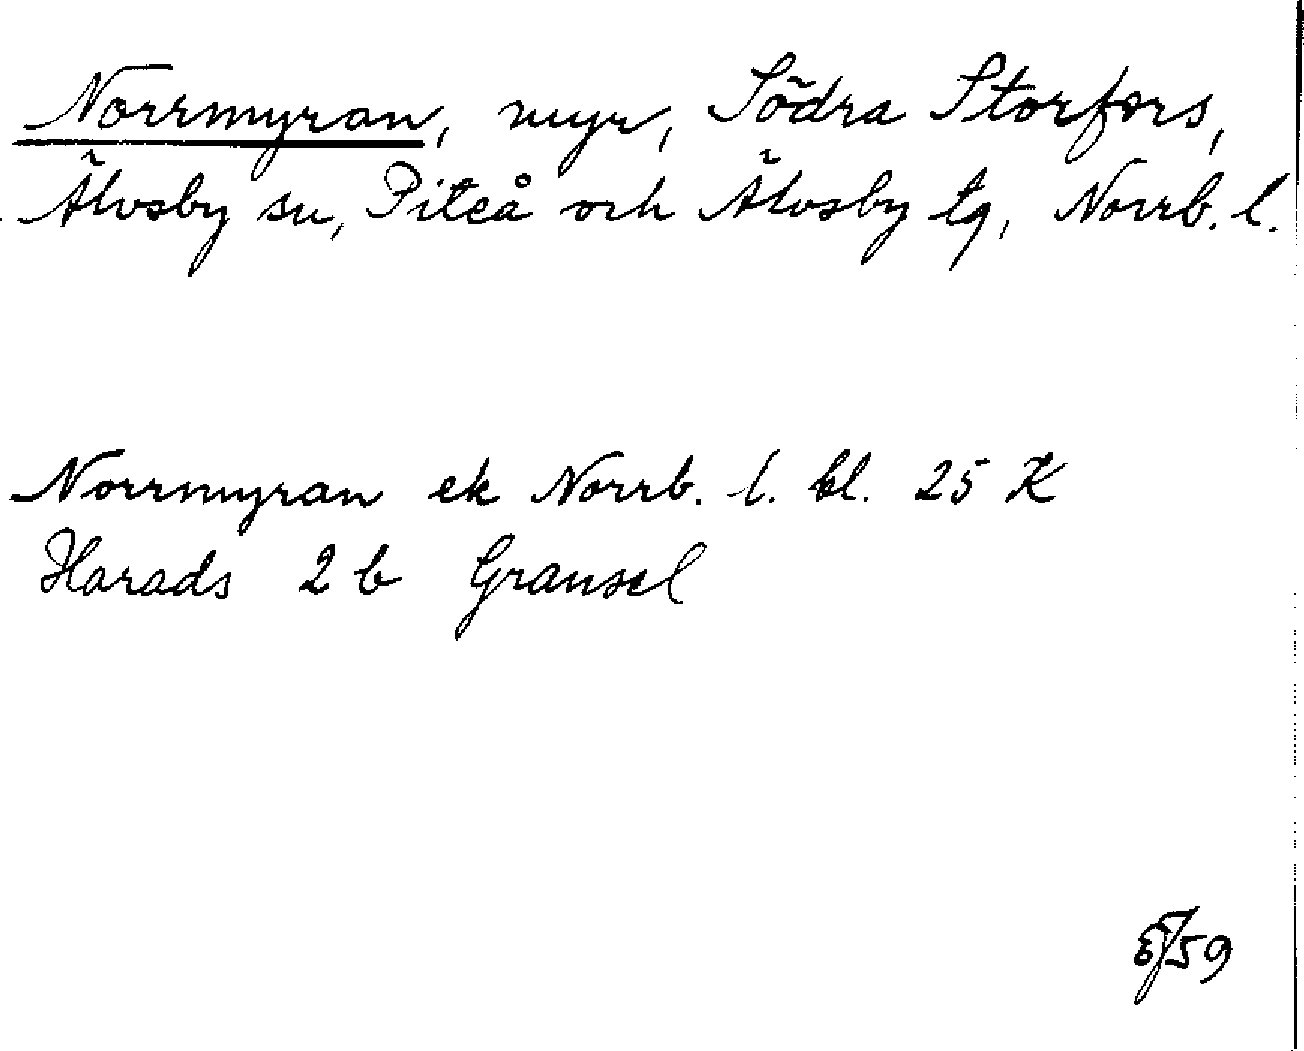 Norrmyran, myr, Södra Storfors,
Älvsby sn, Piteå och Älvsby tg, Norrb. l.
Norrmyran ek Norrb. l. bl. 25 K
Harads 2 b Gransel
/59